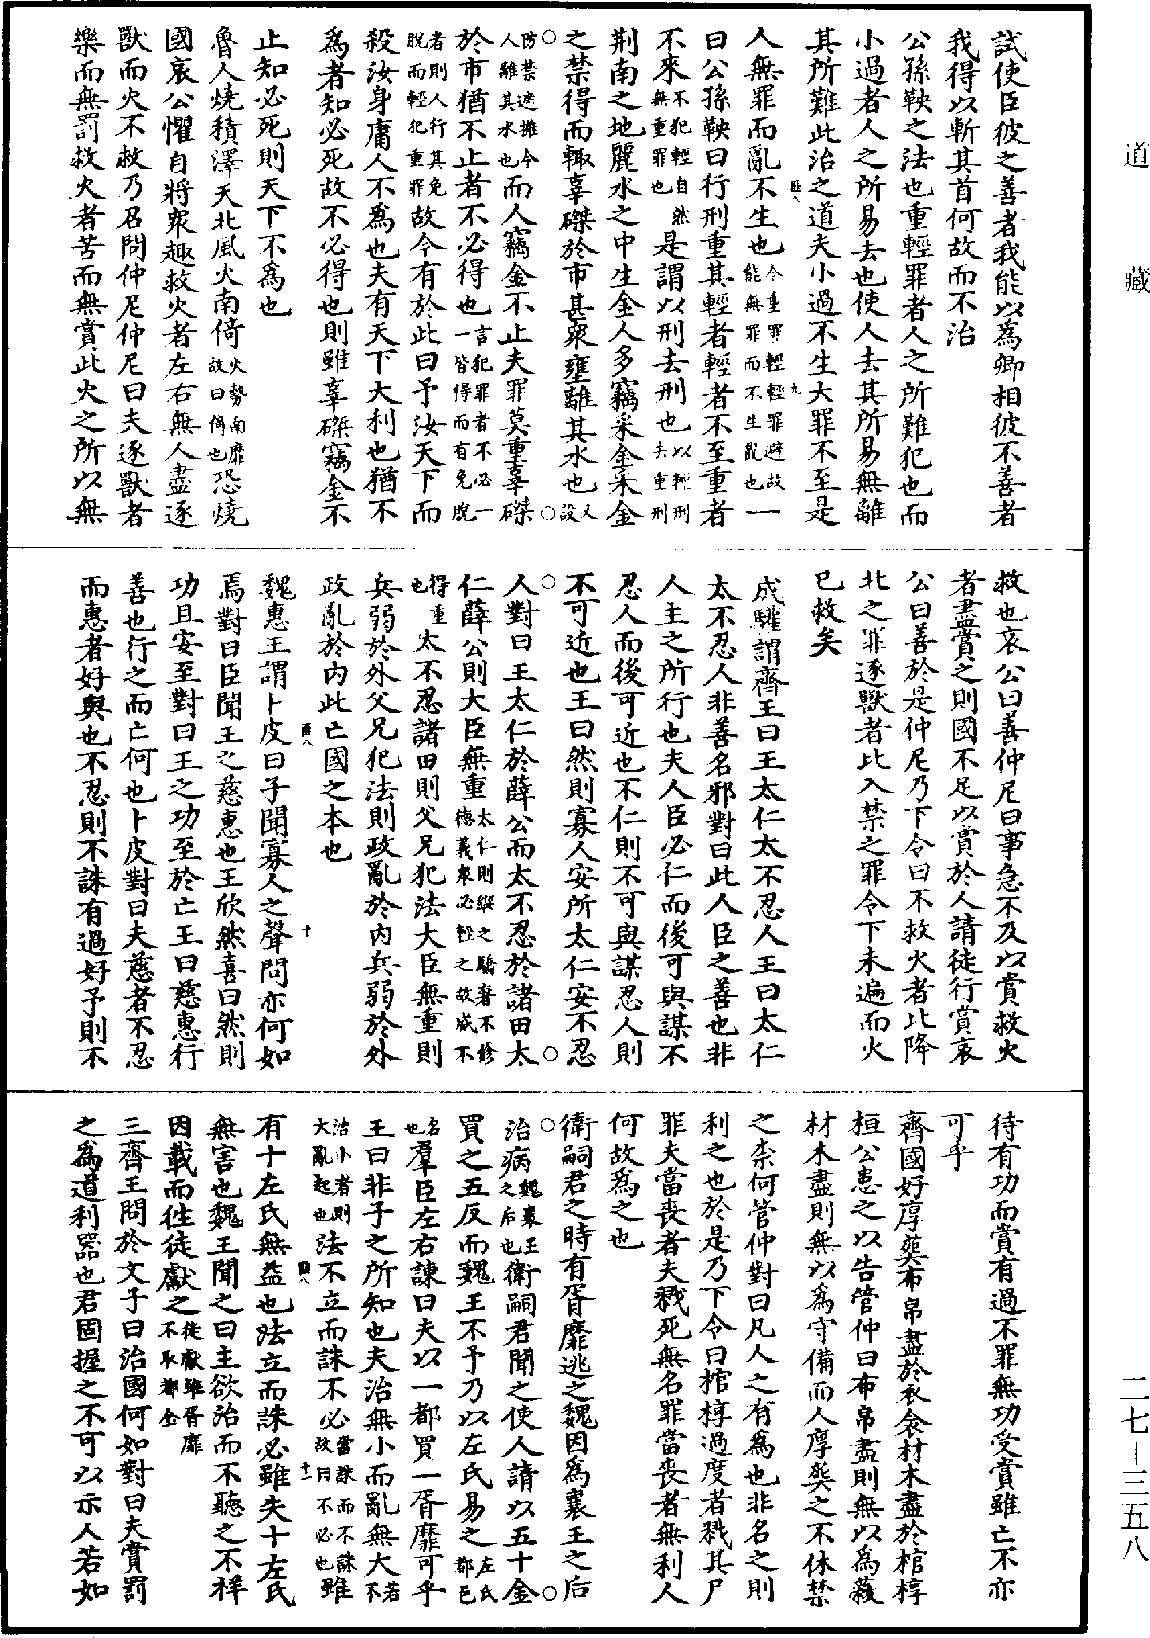 道藏
二七—三五八
試使臣彼之善者我能以為卿相彼不善者
我得以斬其首何故而不治
公孫鞅之法也重輕罪重罪者人之所難犯也而
小過者人之所易去也使人去其所易無離
其所難此治之道夫小過不生大罪不至是
人無罪而亂不生也令重罪輕輕罪避故能無罪而不生亂也一
曰公孫鞅曰行刑重其輕者輕者不至重者
不來不犯輕自然無重罪也是謂以刑去刑也以輕刑去重刑
荆南之地麗水之中生金人多竊采金采金
之禁得而輒辜磔於市甚衆壅離其水也又設
防禁遮擁令人離其水也而人竊金不止夫罪莫重辜磔
於市猶不止者不必得也言犯罪者不必一一皆得而有免脫
者則人行其免脫而輕犯重罪故今有於此曰予汝天下而
殺汝身庸人不為也夫有天下大利也猶不
為者知必死故不必得也則雖辜磔竊金不
止知必死則天下不為也
魯人燒積澤天北風火南倚火勢南靡故曰倚也恐燒
國哀公懼自將衆趣救火者左右無人盡逐
獸而火不救乃召問仲尼仲尼曰夫逐獸者
樂而無罰救火者苦而無賞此火之所以無
救也哀公曰善仲尼曰事急不及以賞救火
者盡賞之則國不足以賞於人請徒行賞哀
公曰善於是仲尼乃下令曰不救火者比降
北之罪逐獸者比入禁之罪令下未遍而火
已救矣
成驩謂齊王曰王太仁太不忍人王曰太仁
太不忍人非善名邪對曰此人臣之善也非
人主之所行也夫人臣必仁而後可與謀不
忍人而後可近也不仁則不可與謀忍人則
不可近也王曰然則寡人安所太仁安不忍
人對曰王太仁於薛公而太不忍於諸田太
仁薛公則大臣無重太仁則縱之驕奢不修德義衆必輕之故威不
得重也太不忍諸田則父兄犯法大臣無重則
兵弱於外父兄犯法則政亂於內兵弱於外
政亂於內此亡國之本也
魏惠王謂卜皮曰子聞寡人之聲問亦何如
焉對曰臣聞王之慈惠也王欣然喜曰然則
功且安至對曰王之功至於亡王曰慈惠行
善也行之而亡何也卜皮對曰夫慈者不忍
而惠者好與也不忍則不誅有過好予則不
待有功而賞有過不罪無功受賞雖亡不亦
可乎
齊國好厚葬布帛盡於衣衾材木盡於棺椁
桓公患之以告管仲曰布帛盡則無以為蔽
材木盡則無以為守備而人厚葬之不休禁
之柰何管仲對曰凡人之有為也非名之則
利之也於是乃下令曰棺椁過度者戮其尸
罪夫當喪者夫戮死無名罪當喪者無利人
何故為之也
衛嗣君之時有胥靡逃之魏因為襄王之后
治病魏襄王之后也衛嗣君聞之使人請以五十金
買之五反而魏王不予乃以左氏易之左氏都邑
名也羣臣左右諫曰夫以一都買一胥靡可乎
王曰非子之所知也夫治無小而亂無大若不
治小者則大亂起也法不立而誅不必當誅而不誅故曰不必也雖
有十左氏無益也法立而誅必雖失十左氏
無害也魏王聞之曰主欲治而不聽之不祥
因載而往徒獻之徒獻雖胥靡不取都金
三齊王問於文子曰治國何如對曰夫賞罰
之為道利器也君固握之不可以示人若如